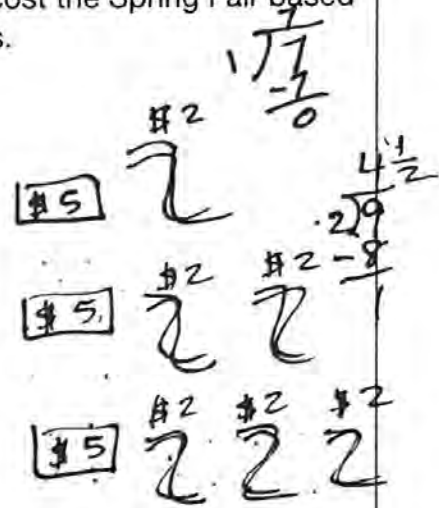 cost the Spring Fair based
s.
7
1)7
-7
0
$2
$5
4 1/2
.2)9
-8
1
$2 $2
$5.
$2 $2 $2
$5